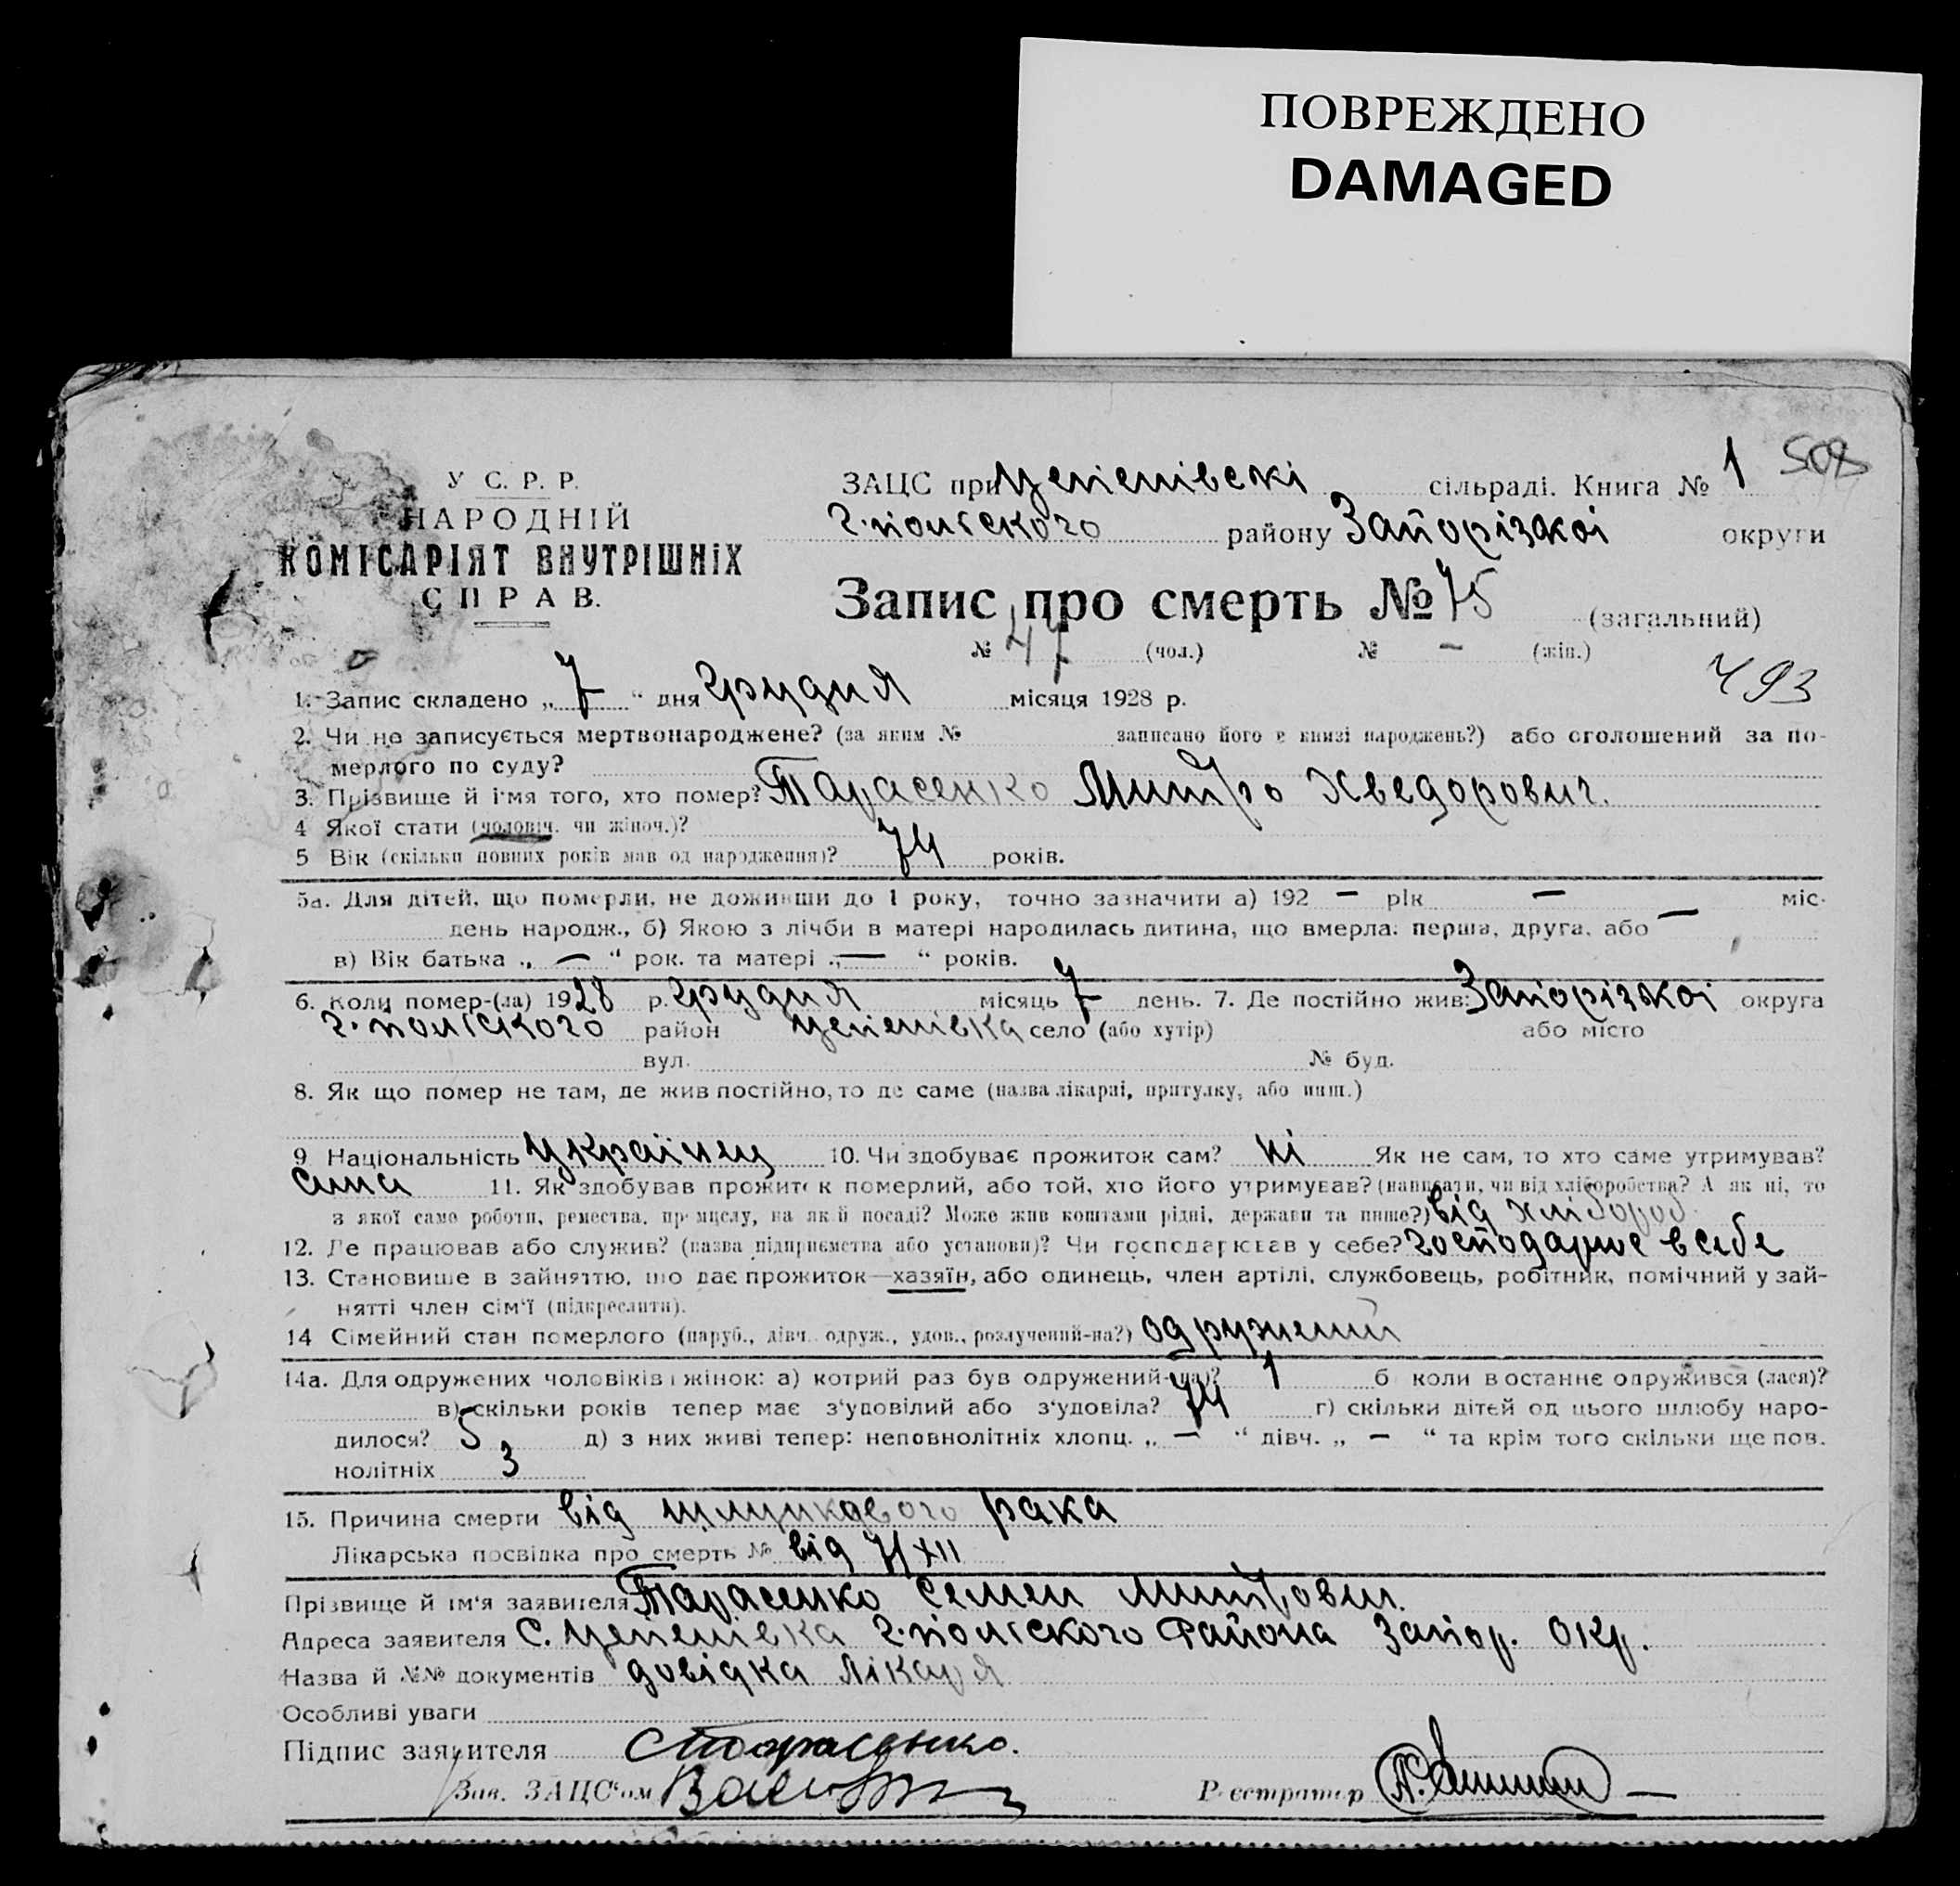 ПОВРЕЖДЕНО
DAMAGED
У С. Р. Р.
НАРОДНІЙ
КОМІСАРІЯТ ВНУТРІШНІХ
СПРАВ.
ЗАЦС при Цепенівскі сільраді. Книга № 1 508
г.польского району Запорізкоі округи
Запис про смерть № 75 (загальний)
№ 47 (чол.) № — (жін.)
493
1. Запис складено „ 7 “ дня грудня місяця 1928 р.
2. Чи не записується мертвонароджене? (за яким № записано його в книзі народжень?) або оголошений за по-
мерлого по суду?
3. Прізвище й ім'я того, хто помер? Тарасенко Митро Хведорович.
4 Якої стати (чоловіч. чи жіноч.)?
5 Вік (скільки повних років мав од народження)? 74 років.
5а. Для дітей, що померли, не доживши до 1 року, точно зазначити а) 192 — рік — міс.
день народж., б) Якою з лічби в матері народилась дитина, що вмерла: перша, друга, або —
в) Вік батька „ — “ рок. та матері „ — “ років.
6. Коли помер-(ла) 1928 р. грудня місяць 7 день. 7. Де постійно жив: Запорізкоі округа
г.польского район Цепенівка село (або хутір) або місто
вул. № буд.
8. Як що помер не там, де жив постійно, то де саме (назва лікарні, притулку, або инш.)
9 Національність українец 10. Чи здобуває прожиток сам? ні Як не сам, то хто саме утримував?
сина 11. Як здобував прожиток померлий, або той, хто його утримував? (написати, чи від хліборобства? А як ні, то
з якої саме роботи, ремества, промислу, на якій посаді? Може жив коштами рідні, держави та инше?) від хлібороб.
12. Де працював або служив? (назва підприємства або установи)? Чи господарював у себе? господарює в себе
13. Становище в зайняттю, що дає прожиток—хазяїн, або одинець, член артілі, службовець, робітник, помічний у зай-
нятті член сім'ї (підкреслити).
14 Сімейний стан померлого (паруб., дівч. одруж., удов., розлучений-на?) одружений
14а. Для одружених чоловіків і жінок: а) котрий раз був одружений-(на)? 1 б коли востаннє одружився (лася)?
в) скільки років тепер має з'удовілий або з'удовіла? 74 г) скільки дітей од цього шлюбу наро-
дилося? 5 д) з них живі тепер: неповнолітніх хлопц. „ — “ дівч. „ — “ та крім того скільки ще пов.
нолітніх 3
15. Причина смерти від рака
Лікарська посвідка про смерть № від 7/XII
Прізвище й ім'я заявителя Тарасенко Семен Митрович.
Адреса заявителя с. Цепенівка г.польского района Запор. окр.
Назва й №№ документів довідка лікаря
Особливі уваги
Підпис заявителя СТарасенко.
Зав. ЗАЦС'ом
Реєстратор